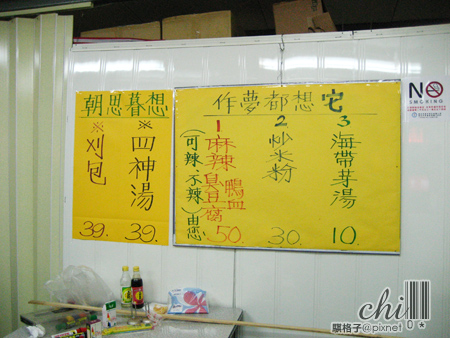 朝思暮想
※
四神湯
39.
※
刈包
39.
作夢都想它
1
麻辣鴨血臭豆腐
(可辣不辣)由您
50.
2
炒米粉
30.
3
海帶芽湯
10
NO
SMOKING
chi
騏格子@pixnet